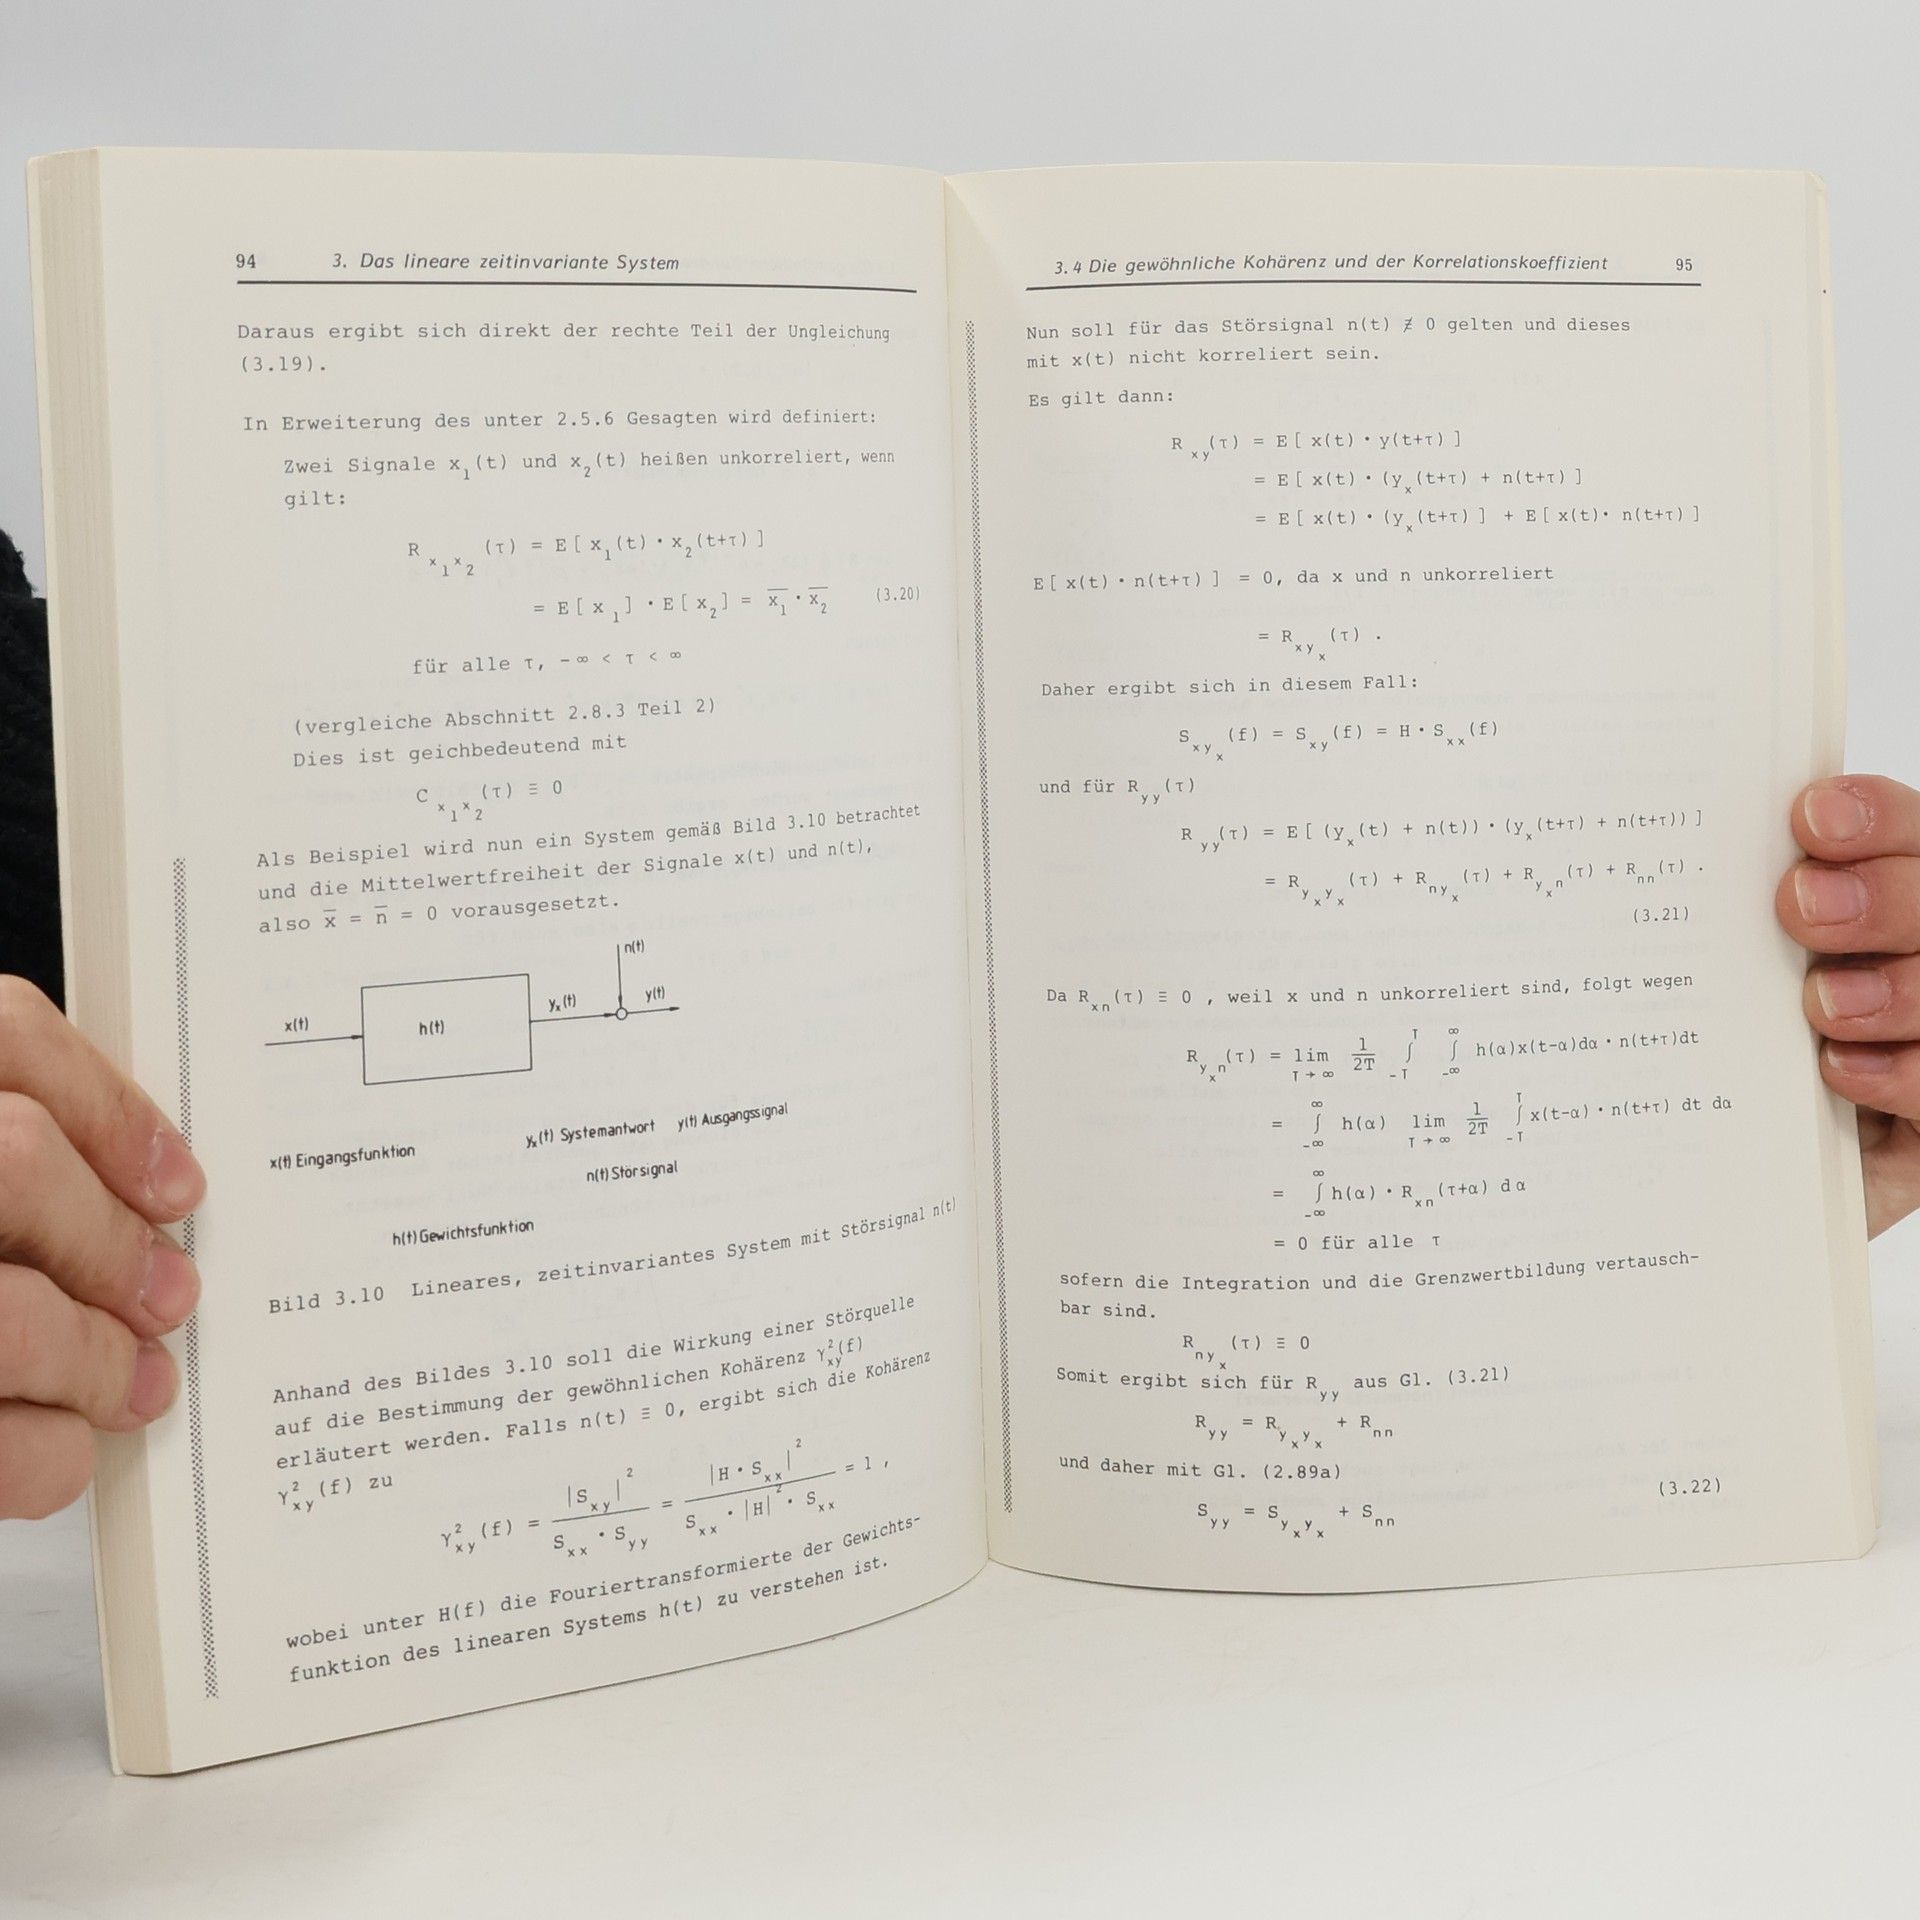 94 3. Das lineare zeitinvariante System
Daraus ergibt sich direkt der rechte Teil der Ungleichung
(3.19).
In Erweiterung des unter 2.5.6 Gesagten wird definiert:
Zwei Signale x₁(t) und x₂(t) heißen unkorreliert, wenn
gilt:
R_x₁x₂ (τ) = E[ x₁(t) · x₂(t+τ) ]
= E[ x₁ ] · E[ x₂ ] = x̄₁ · x̄₂ (3.20)
für alle τ, -∞ < τ < ∞
(vergleiche Abschnitt 2.8.3 Teil 2)
Dies ist geichbedeutend mit
C_x₁x₂ (τ) ≡ 0
Als Beispiel wird nun ein System gemäß Bild 3.10 betrachtet
und die Mittelwertfreiheit der Signale x(t) und n(t),
also x̄ = n̄ = 0 vorausgesetzt.
n(t)
x(t) h(t) yₓ(t) y(t)
x(t) Eingangsfunktion yₓ(t) Systemantwort y(t) Ausgangssignal
n(t) Störsignal
h(t) Gewichtsfunktion
Bild 3.10 Lineares, zeitinvariantes System mit Störsignal n(t)
Anhand des Bildes 3.10 soll die Wirkung einer Störquelle
auf die Bestimmung der gewöhnlichen Kohärenz γ²_xy(f)
erläutert werden. Falls n(t) ≡ 0, ergibt sich die Kohärenz
γ²_xy (f) zu
γ²_xy (f) = |S_xy|² / (S_xx · S_yy) = |H · S_xx|² / (S_xx · |H|² · S_xx) = 1 ,
wobei unter H(f) die Fouriertransformierte der Gewichts-
funktion des linearen Systems h(t) zu verstehen ist.
3.4 Die gewöhnliche Kohärenz und der Korrelationskoeffizient 95
Nun soll für das Störsignal n(t) ≢ 0 gelten und dieses
mit x(t) nicht korreliert sein.
Es gilt dann:
R_xy(τ) = E[ x(t) · y(t+τ) ]
= E[ x(t) · (yₓ(t+τ) + n(t+τ) ]
= E[ x(t) · (yₓ(t+τ) ] + E[ x(t)· n(t+τ) ]
E[ x(t) · n(t+τ) ] = 0, da x und n unkorreliert
= R_xyₓ (τ) .
Daher ergibt sich in diesem Fall:
S_xyₓ (f) = S_xy (f) = H · S_xx (f)
und für R_yy (τ)
R_yy(τ) = E[ (yₓ(t) + n(t)) · (yₓ(t+τ) + n(t+τ)) ]
= R_yₓyₓ (τ) + R_nyₓ (τ) + R_yₓn (τ) + R_nn (τ) .
(3.21)
Da R_xn (τ) ≡ 0 , weil x und n unkorreliert sind, folgt wegen
R_yₓn (τ) = lim_{T→∞} 1/2T ∫_{-T}^{T} ∫_{-∞}^{∞} h(α)x(t-α)dα · n(t+τ)dt
= ∫_{-∞}^{∞} h(α) lim_{T→∞} 1/2T ∫_{-T}^{T} x(t-α) · n(t+τ) dt dα
= ∫_{-∞}^{∞} h(α) · R_xn (τ+α) dα
= 0 für alle τ
sofern die Integration und die Grenzwertbildung vertausch-
bar sind.
R_nyₓ (τ) ≡ 0
Somit ergibt sich für R_yy aus Gl. (3.21)
R_yy = R_yₓyₓ + R_nn
und daher mit Gl. (2.89a)
S_yy = S_yₓyₓ + S_nn (3.22)